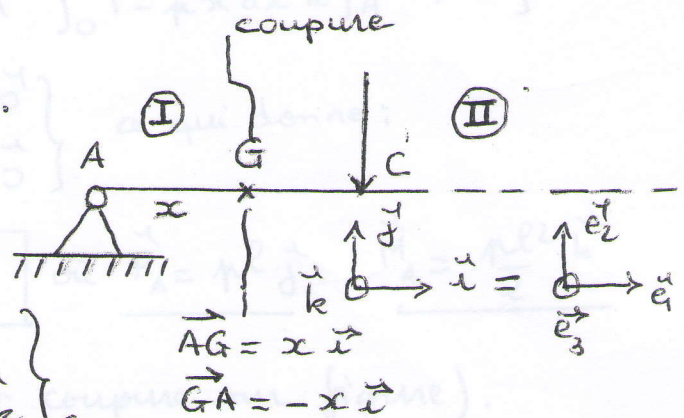 coupure
I II
A G C
x
j⃗ e⃗₂
k⃗ i⃗ = e⃗₁
e⃗₃
A⃗G⃗ = x i⃗
G⃗A⃗ = -x i⃗